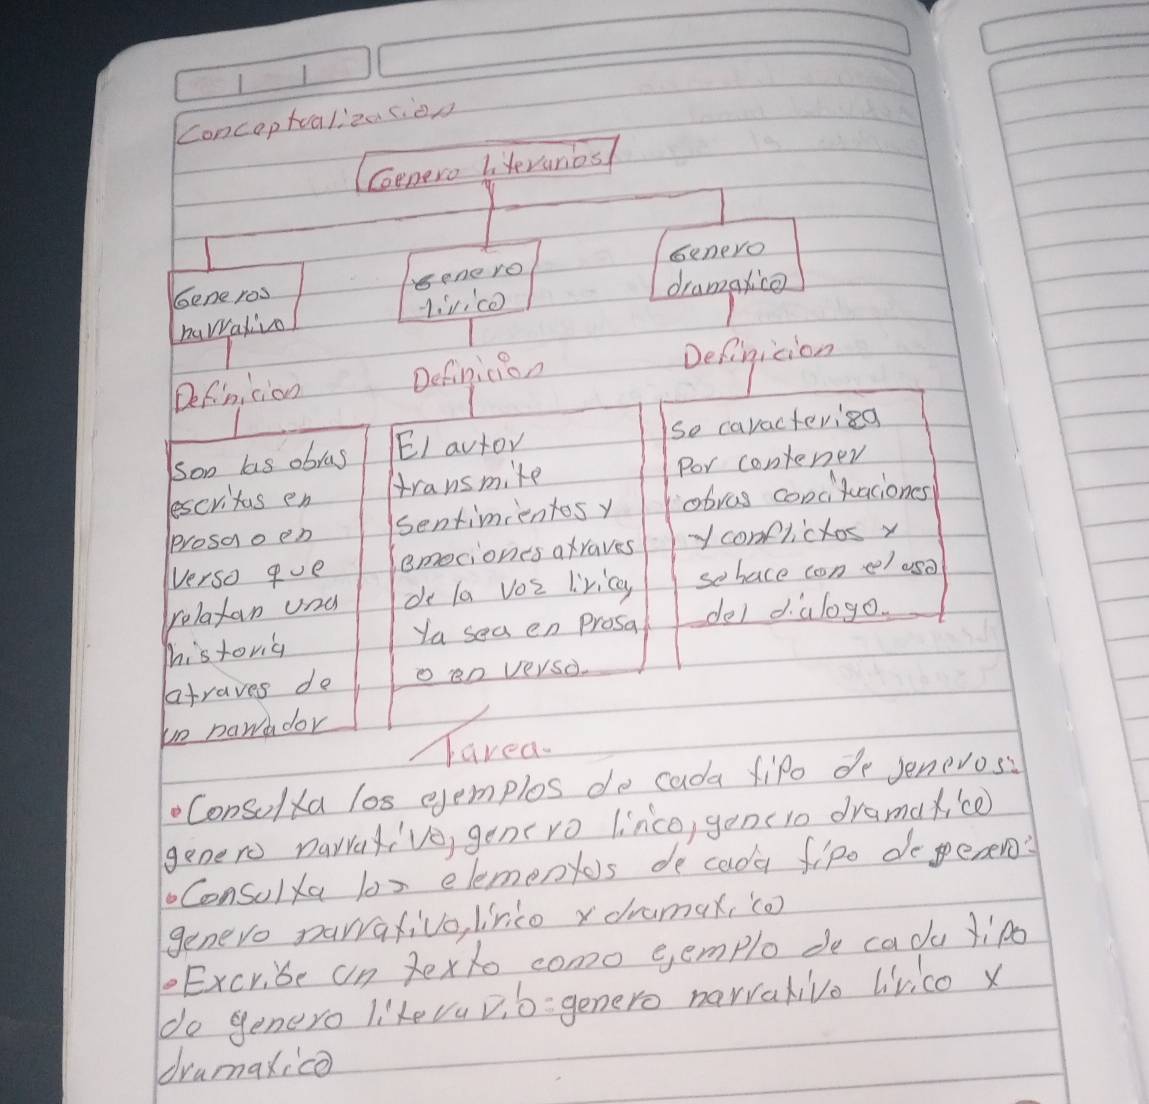 Conceptualizasion
Genero literarios
Generos
narrativo
Genero
lirico
Genero
dramatico
Definicion
Definición
Definicion
Son las obras
escritas en
prosa o en
verso que
relatan una
historia
atraves de
un narrador
El autor
transmite
sentimientos y
emociones atraves
de la voz lirica
Ya sea en Prosa
o en verso.
Se caracteriza
Por contener
obras concituaciones
y conflictos y
se hace con el uso
del dialogo.
Tarea.
•Consulta los ejemplos de cada tipo de jeneros:
genero narrativo, genero lirico, genero dramatico
•Consulta los elementos de cada tipo de genero:
genero narrativo, lirico y dramatico
•Excribe un texto como ejemplo de cada tipo
de genero literario: genero narrativo lirico y
dramatico